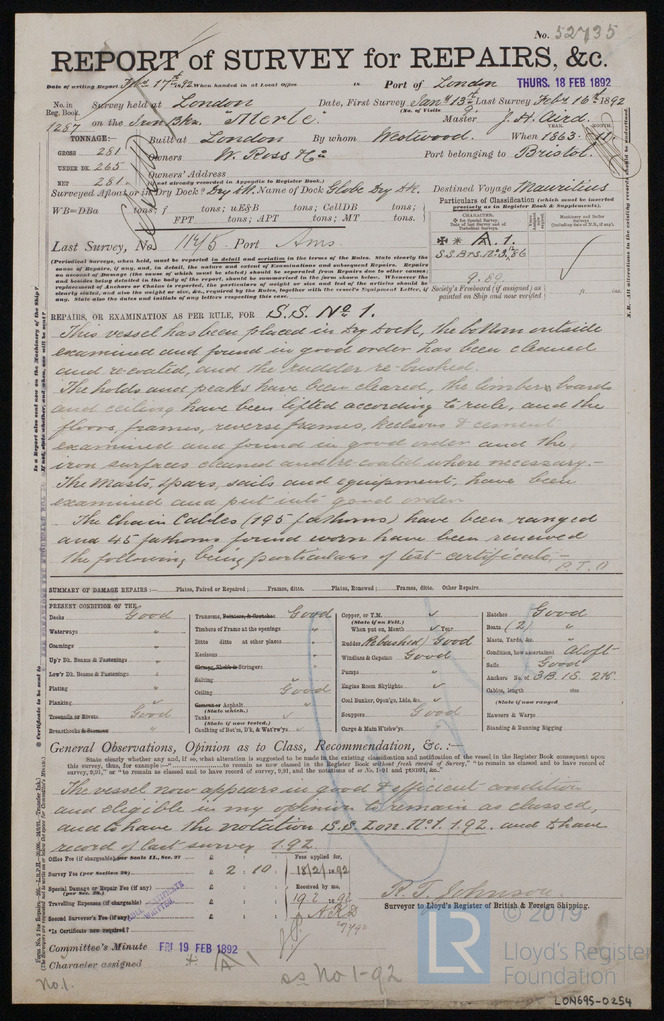 No. 52735
REPORT of SURVEY for REPAIRS, &c.
Date of writing Report Feby 17th 1892 When handed in at Local Office 18 Port of London THURS. 18 FEB 1892
No. in Reg. Book. Survey held at London Date, First Survey Jany 13th Last Survey Feby 16th 1892
(No. of Visits)
1287 on the Iron Bkn. "Merle." Master J. H. Aird.
TONNAGE: Built at London By whom Westwood. When 1863
YEAR. MONTH.
GROSS 281 Owners W. Ross & Co Port belonging to Bristol.
UNDER DK. 265 Owners' Address
(if not already recorded in Appendix to Register Book.)
NET 281
Surveyed Afloat or in Dry Dock? Dry Dk. Name of Dock Globe Dry Dk. Destined Voyage Mauritius
WB=DBa tons; f tons; uE&B tons; CellDB tons;
FPT tons; APT tons; MT tons.
Particulars of Classification (which must be inserted precisely as in Register Book & Supplements).
Last Survey, No. 1175 Port Ams
A.1.
S.S. Ars. No. 3.86
9.89
Society's Freeboard (if assigned) as painted on Ship and now verified ft. ins.
(Periodical surveys, when held, must be reported in detail and seriatim in the terms of the Rules. State clearly the cause of Repairs, if any, and, in detail, the nature and extent of Examinations and subsequent Repairs. Repairs on account of Damage (the cause of which must be stated) should be separated from Repairs due to other causes; and besides being detailed in the body of the report, should be summarized in the form shown below.
REPAIRS, OR EXAMINATION AS PER RULE, FOR S.S. No 1.
This vessel has been placed in Dry Dock, the bottom outside
examined and found in good order has been cleaned
and re-coated, and the rudder re-bushed.
The holds and peaks have been cleared, the limber boards
and ceiling have been lifted according to rule, and the
floors, frames, reverse frames, keelsons & cement
examined and found in good order and the
iron surfaces cleaned and re-coated where necessary.-
The Masts, spars, sails and equipment, have been
examined and put into good order
The Chain Cables (195 fathoms) have been ranged
and 45 fathoms found worn have been renewed
the following being particulars of test certificate.-
P.T.O
SUMMARY OF DAMAGE REPAIRS:- Plates, Faired or Repaired; Frames, ditto. Plates, Renewed; Frames, ditto. Other Repairs.
PRESENT CONDITION OF THE
Decks Good
Waterways "
Coamings "
Up'r Dk. Beams & Fastenings "
Low'r Dk. Beams & Fastenings "
Plating "
Planking
Treenails or Rivets Good
Breasthooks & Sternson
Transoms, Pointers, & Crutches Good
Timbers of Frame at the openings "
Ditto ditto at other places "
Keelsons "
Clamps, Shelfs & Stringers "
Salting
Ceiling Good
Cement or Asphalt
(State which.)
Tanks
(State if now tested.)
Caulking of Bot'm, D'k, & Wat'rw'ys
Copper, or Y.M.
(State if on Felt.)
When put on, Month Year
Rudder (Rebushed) Good
Windlass & Capstan Good
Pumps "
Engine Room Skylights
Coal Bunker, Open'gs, Lids, &c.
Scuppers Good
Cargo & Main H'tchw'ys "
Hatches Good
Boats (2) "
Masts, Yards, &c. "
Condition, how ascertained Aloft
Sails Good
Anchors No. of 3B. 1S. 2K.
Cables, length
(State if now ranged
Hawsers & Warps
Standing & Running Rigging
General Observations, Opinion as to Class, Recommendation, &c.:—
State clearly whether any, and if so, what alteration is suggested to be made in the existing classification and notification of the vessel in the Register Book consequent upon
The vessel now appears in good & efficient condition
and eligible in my opinion to remain as classed,
and to have the notation S.S. Lon. No 1. 1.92. and to have
record of last survey 1.92.
Office Fee (if chargeable) per Scale II., Sec. 27 £ : :
Fees applied for,
Survey Fee (per Section 28) £ 2 : 10 :
18/2/1892
Special Damage or Repair Fee (if any) (per Sec. 28.) £ : :
Received by me,
Travelling Expenses (if chargeable) £ : :
19.2.1892
Second Surveyor's Fee (if any) £ : :
*Is Certificate now required?
R. T. Johnson.
Surveyor to Lloyd's Register of British & Foreign Shipping.
Committee's Minute FRI. 19 FEB 1892
Character assigned A1
No. 1.
ss No 1-92
LR
© 2019
Lloyd's Register
Foundation
LON695-0254